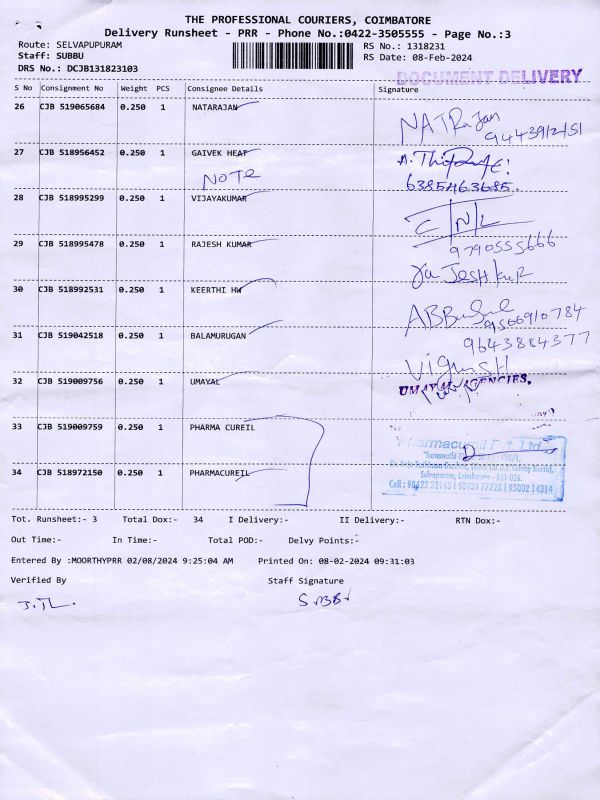 THE PROFESSIONAL COURIERS, COIMBATORE
Delivery Runsheet - PRR - Phone No.:0422-3505555 - Page No.:3
Route: SELVAPUPURAM
RS No.: 1318231
Staff: SUBBU
RS Date: 08-Feb-2024
DRS No.: DCJB131823103
DOCUMENT DELIVERY
S No Consignment No Weight PCS Consignee Details Signature
26 CJB 519065684 0.250 1 NATARAJAN
NATRajan
9443912151
27 CJB 518956452 0.250 1 GAIVEK HEAT
NOTE
6385463685
28 CJB 518995299 0.250 1 VIJAYAKUMAR
C/N/L
29 CJB 518995478 0.250 1 RAJESH KUMAR
9790555666
30 CJB 518992531 0.250 1 KEERTHI HW
9566910784
31 CJB 519042518 0.250 1 BALAMURUGAN
9643884377
32 CJB 519009756 0.250 1 UMAYAL
UMAYAL AGENCIES,
33 CJB 519009759 0.250 1 PHARMA CUREIL
Pharmacureil Pvt. Ltd.
34 CJB 518972150 0.250 1 PHARMACUREIL
Selvapuram, Coimbatore - 641 026.
Cell : 90422 32143 | 98439 77728 | 95002 14314
Tot. Runsheet:- 3 Total Dox:- 34 I Delivery:- II Delivery:- RTN Dox:-
Out Time:- In Time:- Total POD:- Delvy Points:-
Entered By :MOORTHYPRR 02/08/2024 9:25:04 AM Printed On: 08-02-2024 09:31:03
Verified By Staff Signature